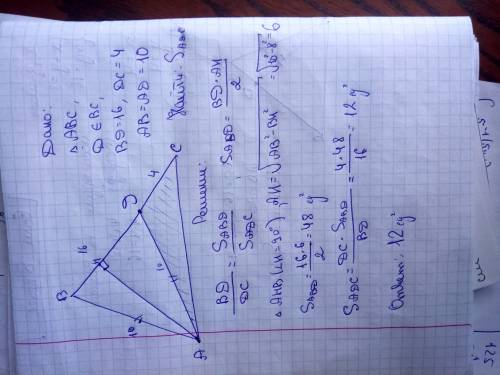 Дано:
△ABC,
D∈BC,
BD=16, DC=4
AB=AD=10
Найти: S_ADC
B
16
H
D
4
C
10
10
A
Решение:
BD/DC = S_ABD/S_ADC
S_ABD = BD·AH/2
△AHB (∠H=90°), AH=√AB²-BH² =√10²-8²=6
S_ABD=16·6/2=48 ед²
S_ADC=DC·S_ABD/BD=4·48/16=12 ед²
Ответ: 12 ед²